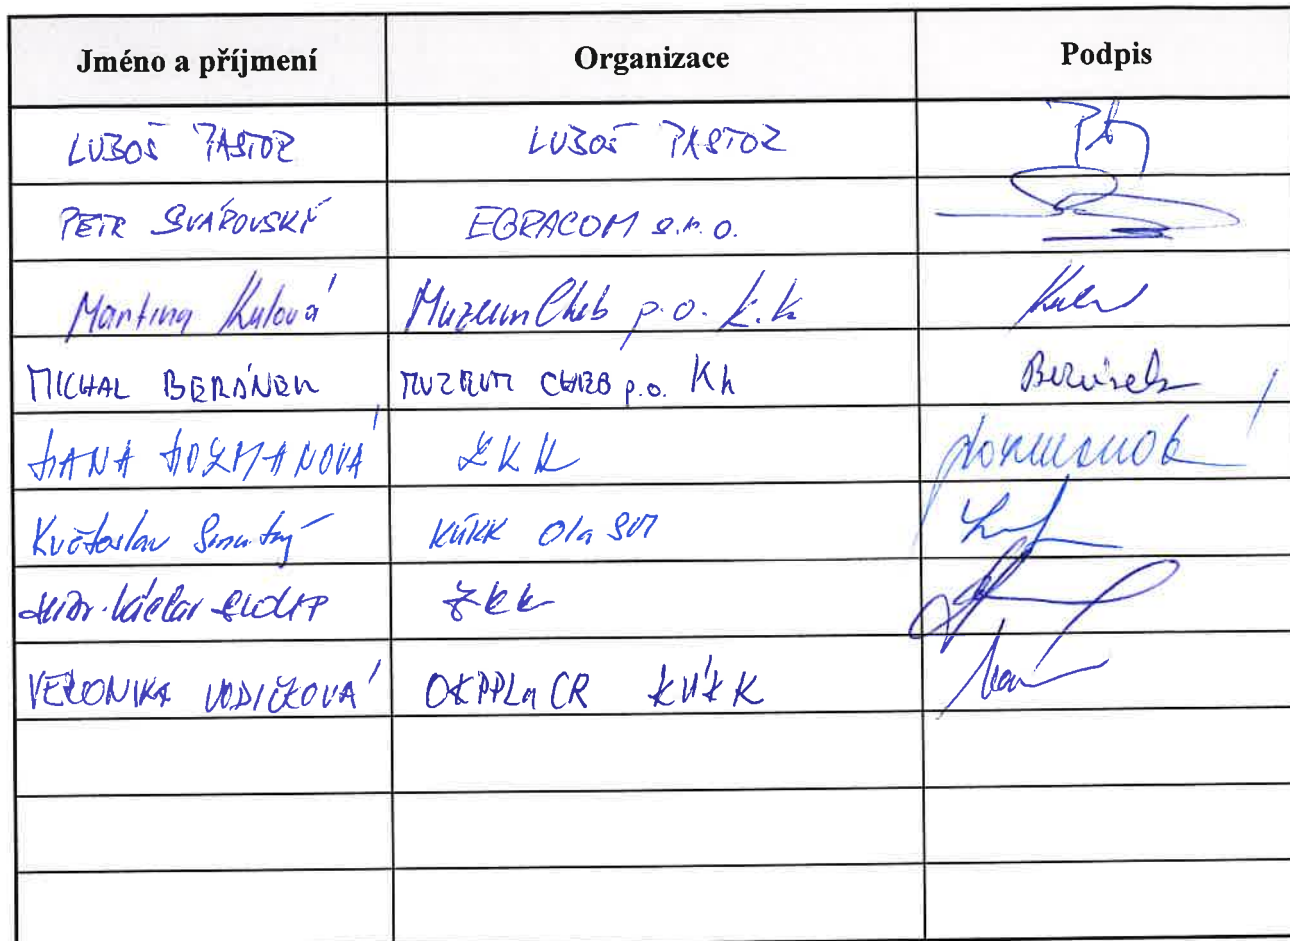 Jméno a příjmení Organizace Podpis
LUBOŠ PASTOR LUBOŠ PASTOR
PETR SVÁROVSKÝ EGRACOM s.r.o.
Martina Kulová Muzeum Cheb p.o. K.k
MICHAL BERÁNEK MUZEUM CHEB p.o. Kk Beránek
ZKK
Květoslav Smutný KÚKK
Václav ZKK
VERONIKA VODIČKOVÁ OKPPLaCR KÚKK